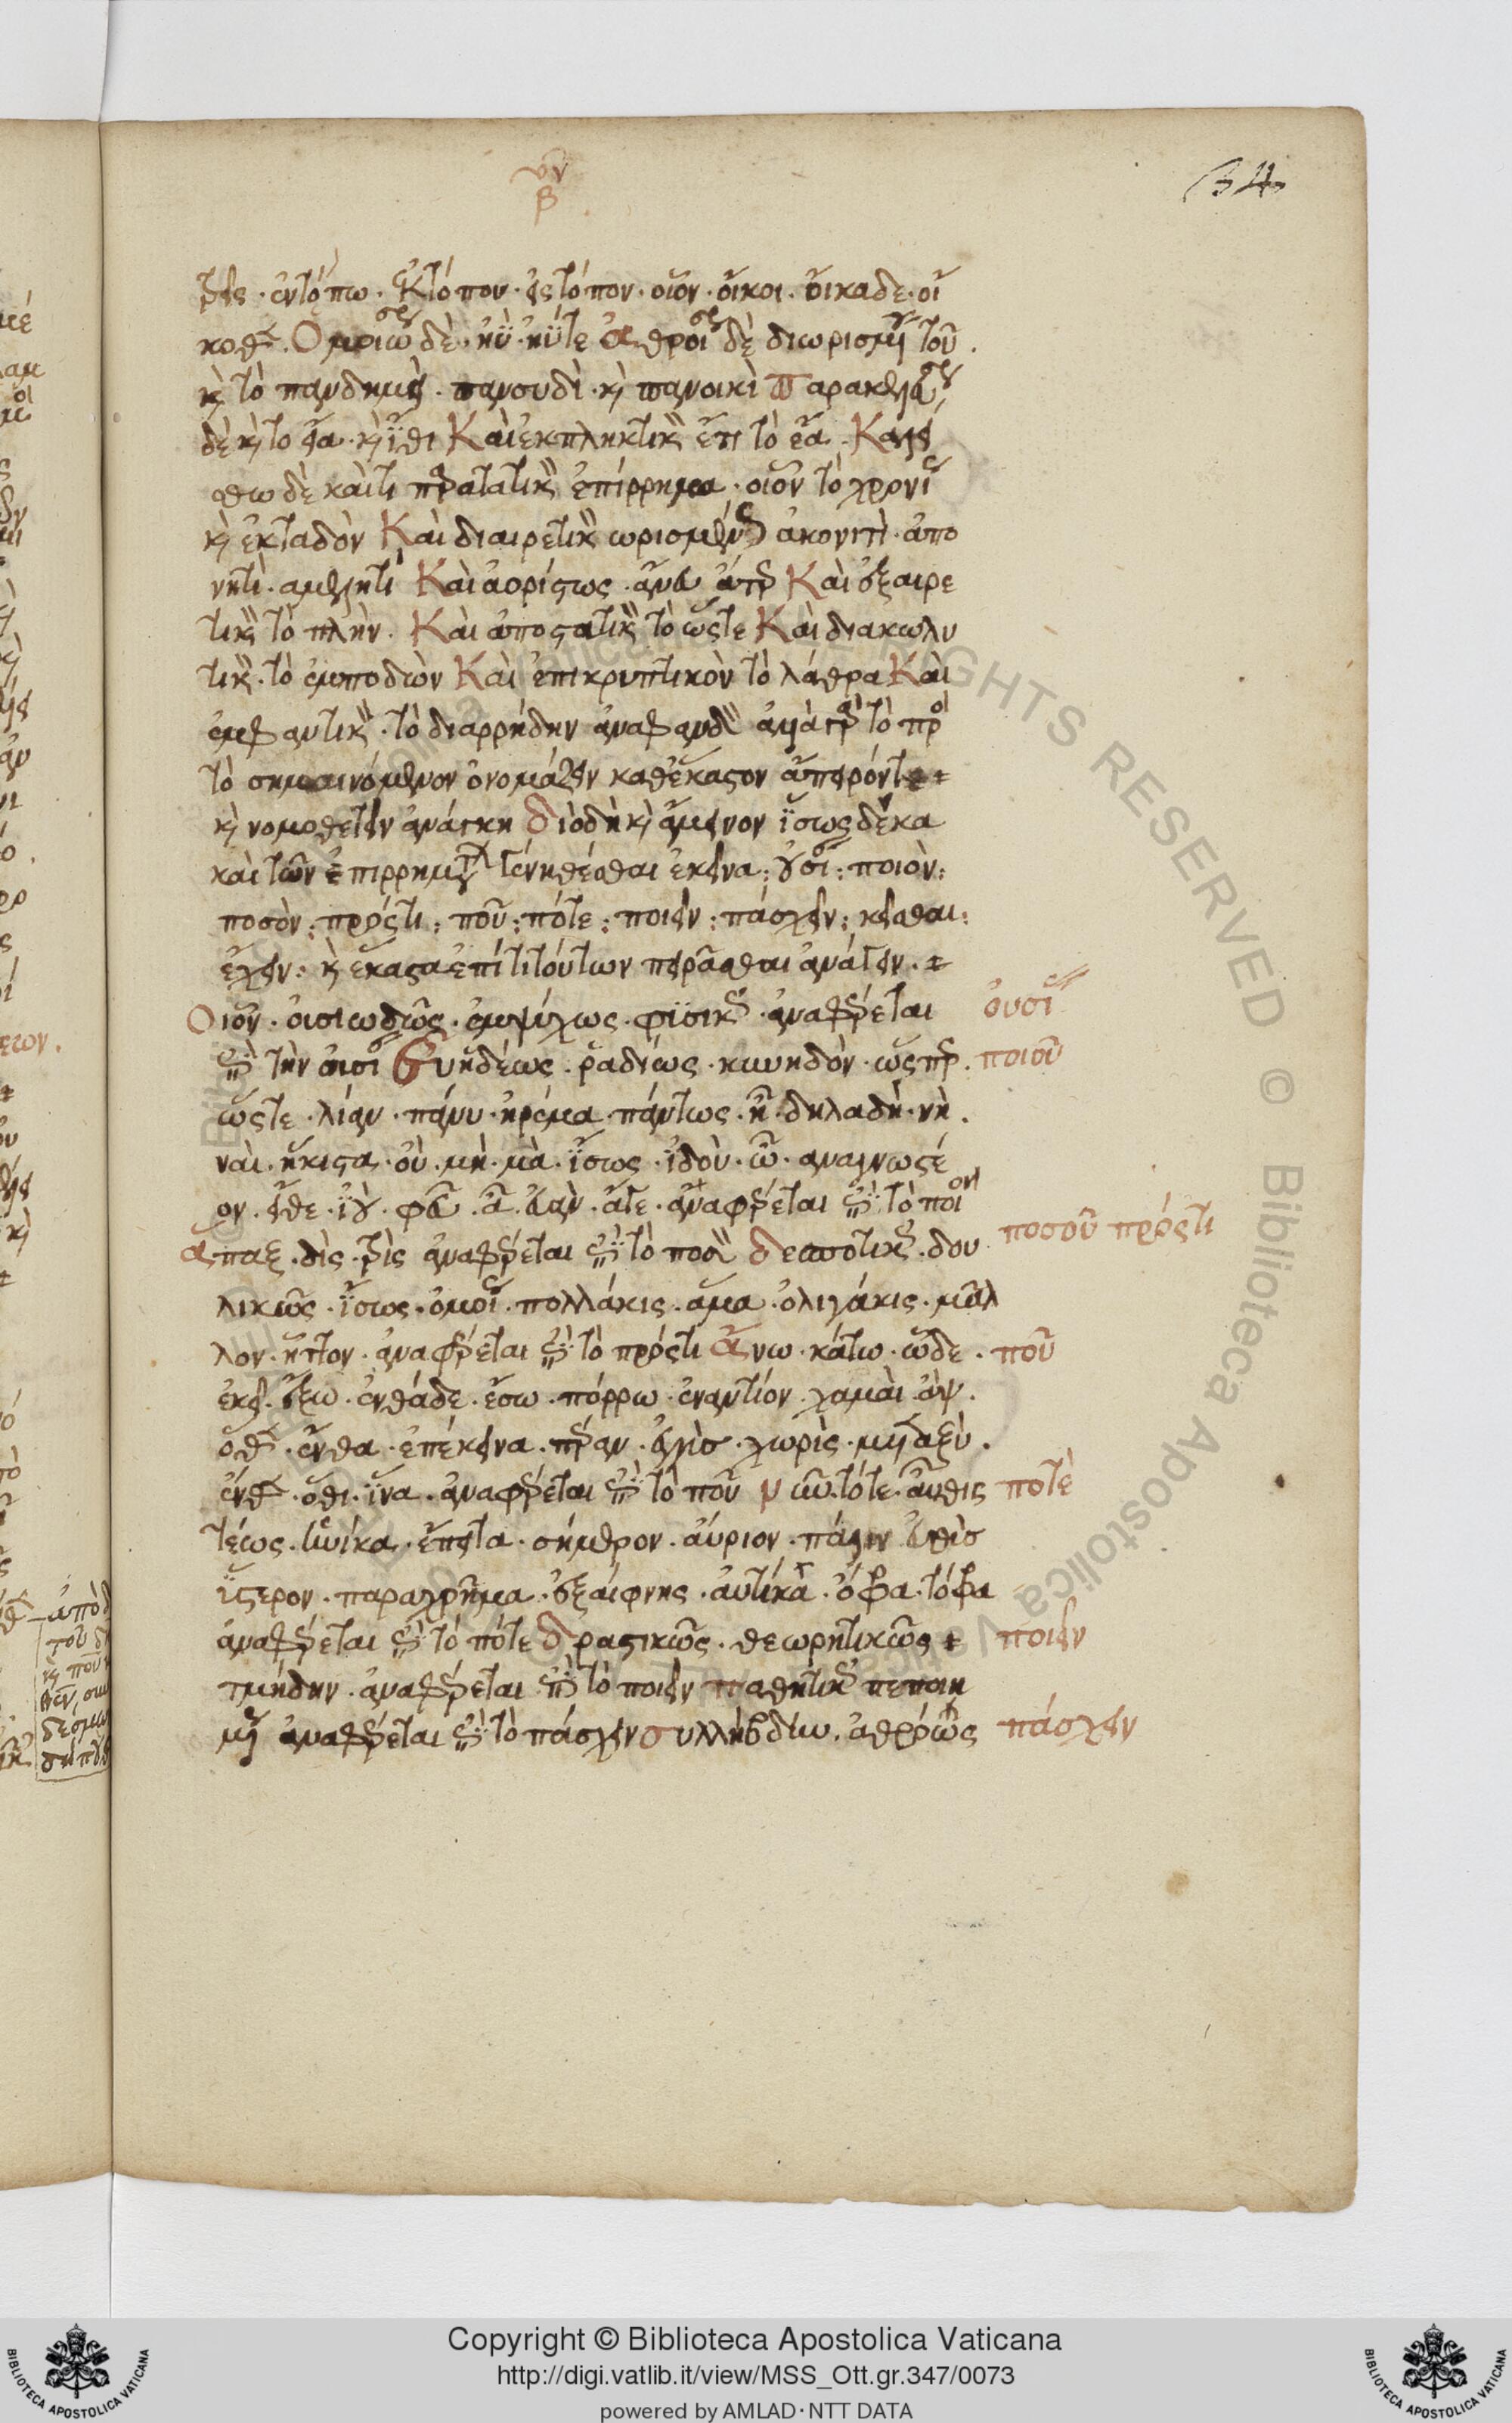 νῦν
β
64
τρεῖς · ἐν τόπω · ἐκ τόπου · εἰς τόπον · οἷον · οἴκοι · οἴκαδε · οἴ
κοθεν · δὲ · ἠΰ · ἠΰτε δὲ διωρισμέν τοῦ .
καὶ τὸ πανδημεὶ · πανσυδὶ · καὶ πανοικὶ
δὲ καὶ το εἶα · καὶ ἴθι Καὶ ἐκπληκτικὸν ἔτι τὸ ἔα · Καλεί
σθω δὲ καί τι παρατατικὸν ἐπίρρημα · οἷον τὸ χρονί
καὶ ἐκταδὸν Καὶ διαιρετικὸν ὡρισμένως ἀκονιτὶ · ἀπο
νητὶ · αμελητὶ Καὶ ἀορίστως · ἄνευ ἄτερ Καὶ ἐξαιρε
τικὸν τὸ πλὴν · Καὶ ἀποστατικὸν τὸ ὥστε Καὶ διακωλυ
τικὸν · τὸ ἐμποδὼν Καὶ ἐπικρυπτικὸν τὸ λάθρα Καὶ
ἐμφαντικὸν · τὸ διαρρήδην ἀναφανδὸν ἀλλὰ γὰρ τὸ πρὸς
τὸ σημαινόμενον ὀνομάζειν καθέκαστον
καὶ νομοθετεῖν ἀνάγκη διὸ δὴ καὶ ἄμεινον ἴσως δέκα
καὶ τῶν ἐπιρρημάτων γένη θέσθαι ἐκεῖνα : οὐσί : ποιὸν :
ποσὸν : πρόςτι : ποῦ : πότε : ποιεῖν : πάσχειν : κεῖσθαι :
ἔχειν : καὶ ἕκαστα ἐπί τι τούτων πειρᾶσθαι ἀνάγειν ·
Οἷον · οὐσιωδῶς · ἐμψύχως · φυσικῶς · ἀναφέρεται οὐσί
ἐπὶ τὴν οὐσί Συνηδέως · ῥαδίως · κυνηδὸν · ὥσπερ · ποιοῦ
ὥστε · λίαν · πάνυ · ἠρέμα · πάντως · ἦ · δηλαδή · νὴ .
ναὶ · ἥκιστα · οὐ · μὴ · μὰ · ἴσως · ἰδοὺ · ὦ · αναγνωστέ
ον · εἴθε · ἰοὺ · φεῦ · ἆ · ἐὰν · ἅτε · ἀναφέρεται ἐπὶ τὸ ποιὸν
απαξ · δὶς · τρὶς ἀναφέρεται ἐπὶ τὸ ποσὸν δεσποτικῶς · δου ποσοῦ πρόςτι
λικῶς · ἴσως · ὁμοί · πολλάκις · ἅμα · ὀλιγάκις · μᾶλ
λον · ἧττον · ἀναφέρεται ἐπὶ τὸ πρόςτι ἄνω · κάτω · ὧδε · ποῦ
ἐκεῖ · ἔξω · ἐνθάδε · ἔσω · πόρρω · ἐναντίον · χαμαὶ ἂψ .
ὅθεν · ἔνθα · ἐπέκεινα · πέραν · ἐγγὺς · χωρὶς · μεταξὺ .
ἔνθεν · ὅθι · ἵνα · ἀναφέρεται ἐπὶ τὸ ποῦ νῦν · τότε · αὖθις ποτὲ
τέως · ἡνίκα · ἔπειτα · σήμερον · αύριον · πάλιν εὐθὺς
ὕστερον · παραχρῆμα · ἐξαίφνης · αὐτίκα · ὄφρα · τόφρα
ἀναφέρεται ἐπὶ τὸ πότε δραστικῶς · θεωρητικῶς ποιεῖν
τμήδην · ἀναφέρεται ἐπὶ τὸ ποιεῖν παθητικῶς πεποιη
μέν ἀναφέρεται ἐπὶ τὸ πάσχειν συλλήβδην · ἀθρόως πάσχειν
ALL RIGHTS RESERVED © Biblioteca Apostolica Vaticana
Copyright © Biblioteca Apostolica Vaticana
http://digi.vatlib.it/view/MSS_Ott.gr.347/0073
powered by AMLAD·NTT DATA
BIBLIOTECA APOSTOLICA VATICANA
BIBLIOTECA APOSTOLICA VATICANA